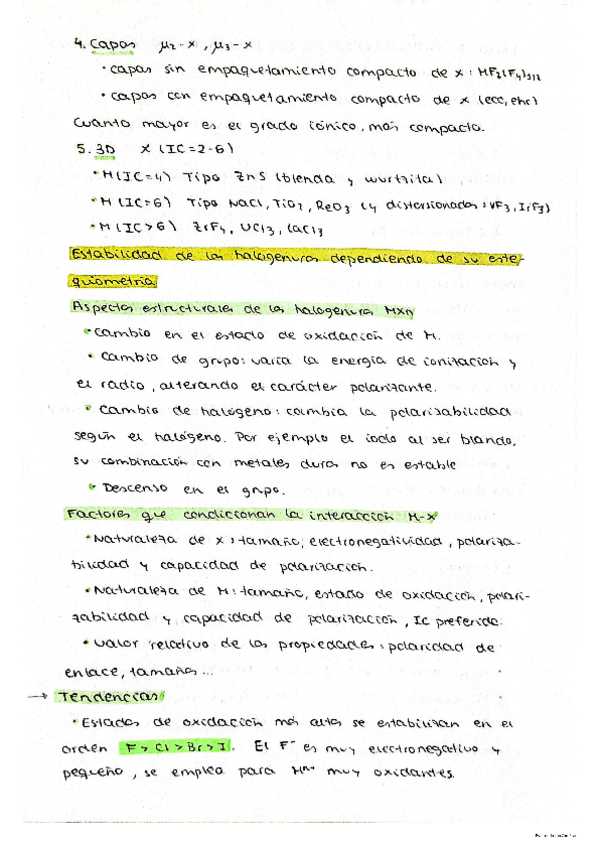 4. Capas μ2-X, μ3-X
• capas sin empaquetamiento compacto de X: MF2(F4)2/2
• capas con empaquetamiento compacto de X (ecc, ehc)
Cuanto mayor es el grado iónico, más compacto.
5. 3D X (IC=2-6)
• M(IC=4) Tipo ZnS (blenda y wurtzita)
• M(IC=6) Tipo NaCl, TiO2, ReO3 (y distorsionados: VF3, IrF3)
• M(IC>6) ZrF4, UCl3, LaCl3
Estabilidad de los halogenuros dependiendo de su este-
quiometría
Aspectos estructurales de los halogenuros MXn
• Cambio en el estado de oxidación de M.
• Cambio de grupo: varía la energía de ionización y
el radio, alterando el carácter polarizante.
• Cambio de halógeno: cambia la polarizabilidad
según el halógeno. Por ejemplo el iodo al ser blando,
su combinación con metales duros no es estable
• Descenso en el grupo.
Factores que condiccionan la interacción M-X
• Naturaleza de X: tamaño, electronegatividad, polariza-
bilidad y capacidad de polarización.
• Naturaleza de M: tamaño, estado de oxidación, polari-
zabilidad y capacidad de polarización, IC preferido.
• Valor relativo de las propiedades: polaridad de
enlace, tamaños...
→ Tendencias
• Estados de oxidación más altos se estabilizan en el
orden F > Cl > Br > I. El F⁻ es muy electronegativo y
pequeño, se emplea para Mⁿ⁺ muy oxidantes.